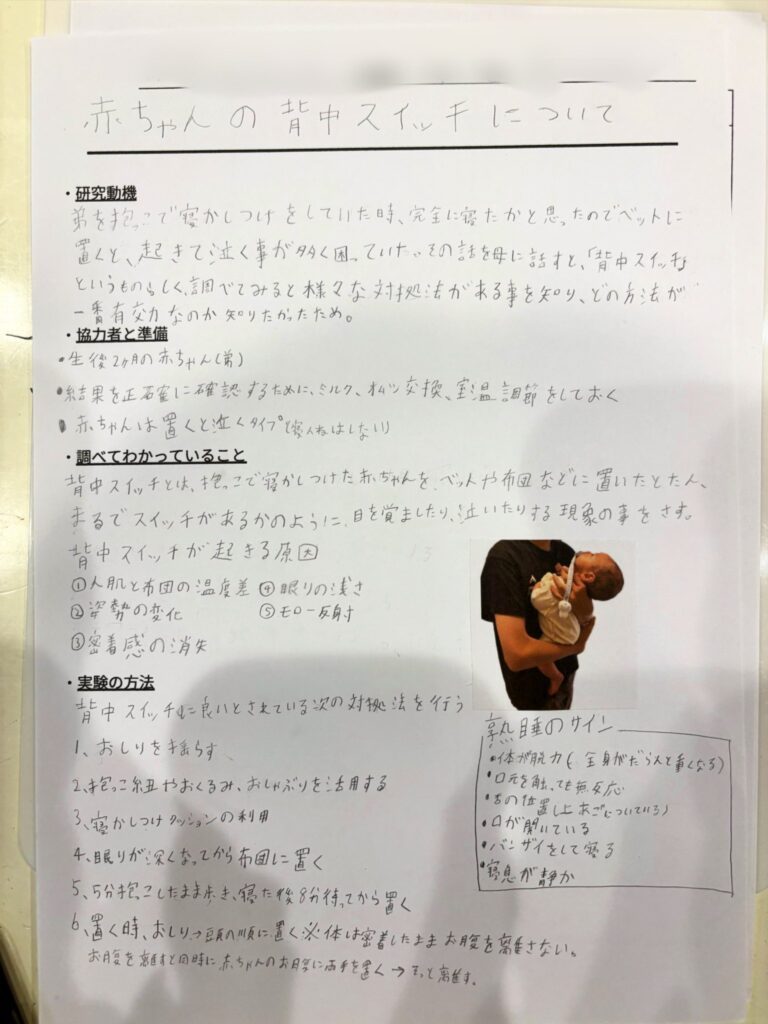 赤ちゃんの背中スイッチについて
・研究動機
弟を抱っこで寝かしつけをしていた時、完全に寝たかと思ったのでベットに
置くと、起きて泣く事が多く困っていた。その話を母に話すと、「背中スイッチ」
というものらしく、調べてみると様々な対処法がある事を知り、どの方法が
一番有効なのか知りたかったため。
・協力者と準備
・生後2ヶ月の赤ちゃん(弟)
・結果を正確に確認するために、ミルク、オムツ交換、室温調節をしておく
・赤ちゃんは置くと泣くタイプ
・調べてわかっていること
背中スイッチとは、抱っこで寝かしつけた赤ちゃんを、ベットや布団などに置いたとたん、
まるでスイッチがあるかのように、目を覚ましたり、泣いたりする現象の事をさす。
背中スイッチが起きる原因
①人肌と布団の温度差 ④眠りの浅さ
②姿勢の変化 ⑤モロー反射
③密着感の消失
・実験の方法
背中スイッチに良いとされている次の対処法を行う
1、おしりを揺らす
2、抱っこ紐やおくるみ、おしゃぶりを活用する
3、寝かしつけクッションの利用
4、眠りが深くなってから布団に置く
5、5分抱っこしたまま歩き、寝た後8分待ってから置く
6、置く時、おしり→頭の順に置く※体は密着したままお腹を離さない。
お腹を離すと同時に赤ちゃんのお腹に両手を置く→そっと離す。
熟睡のサイン
・体が脱力(全身がだらんと重くなる)
・口元を触っても無反応
・舌の位置(上あごについている)
・口が開いている
・バンザイをして寝る
・寝息が静か